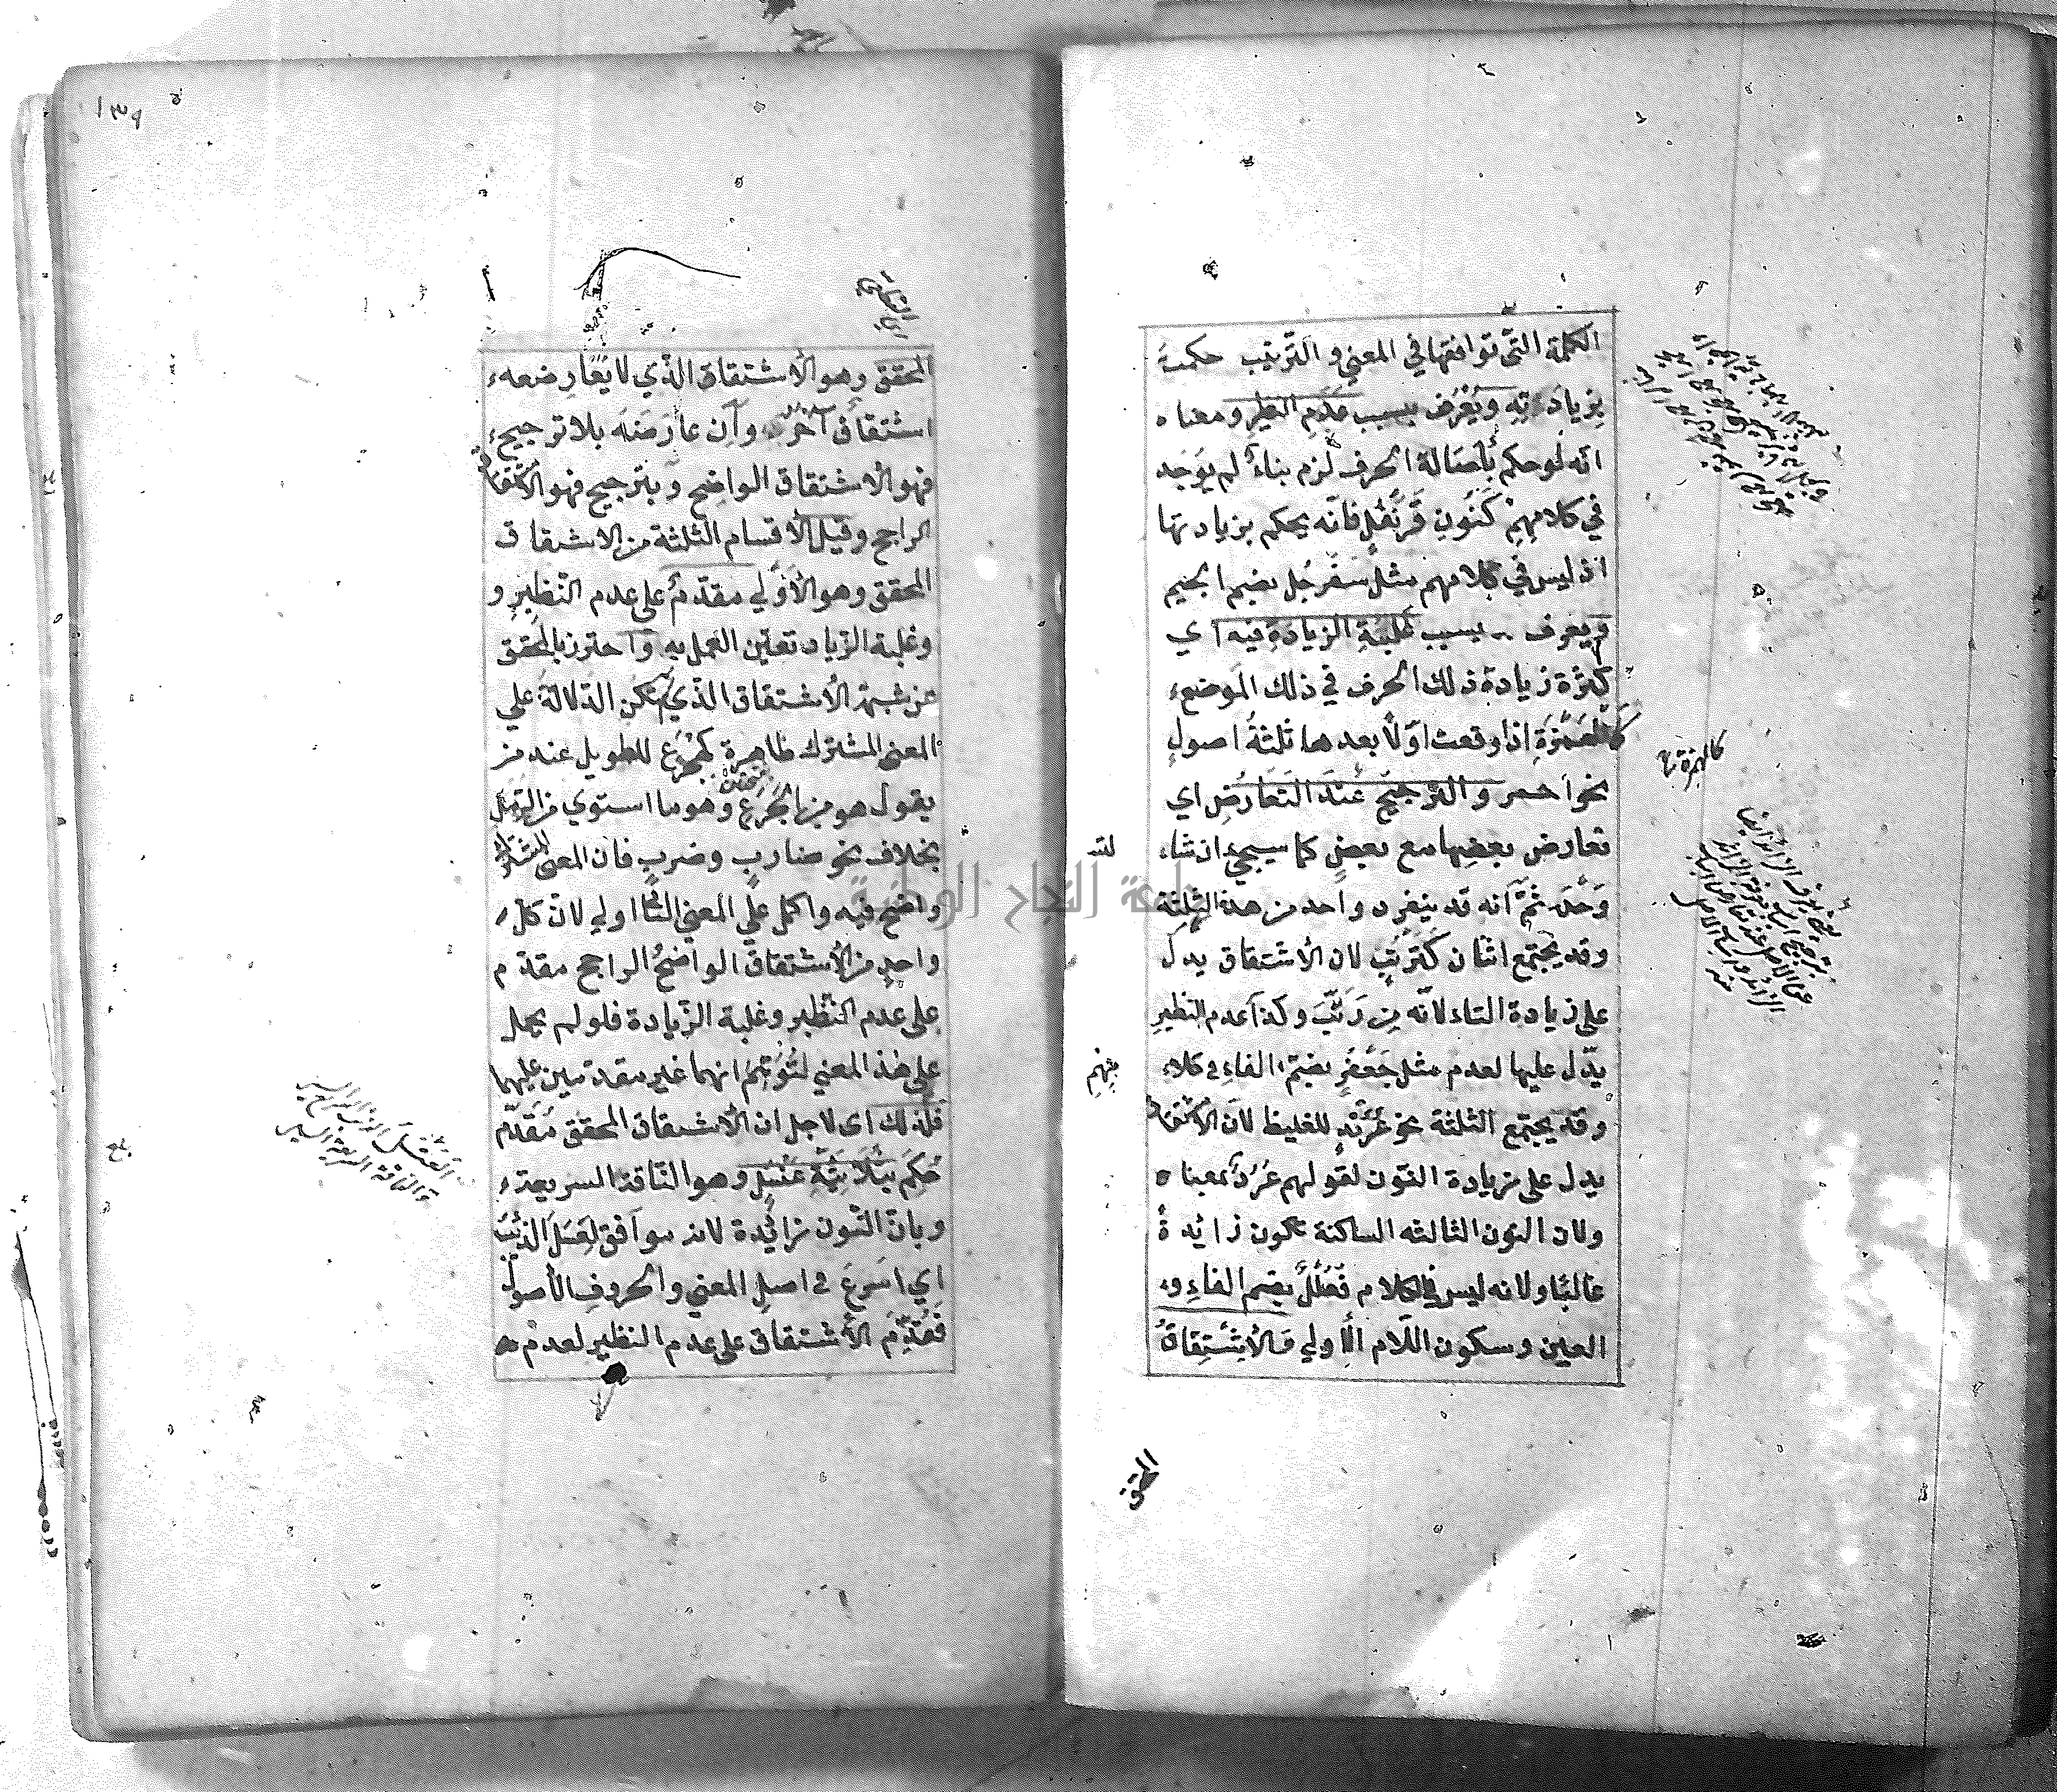 الكلمة التي توافقها في المعني والترتيب حكمت
بزيادته ويعرف بسبب عدم النظير ومعناه
انه لو حكم بأصالة الحرف لزم بناء لم يوجد
في كلامهم كنون قرنفل فانه يحكم بزيادتها
اذ ليس في كلامهم مثل سفرجل بضم الجيم
ويعرف بسبب غلبة الزيادة فيه اي
كثرة زيادة ذلك الحرف في ذلك الموضع
كالهمزة اذا وقعت اولا بعدها ثلثة اصول
كالهمزة
نحو احمر والترجيح عند التعارض اي
تعارض بعضها مع بعض كما سيجيء ان شاء
وحده ثم انه قد ينفرد واحد من هذه الثلثة
وقد يجتمع اثنان كترتب لان الاشتقاق يدل
علي زيادة التاء لانه من رتب وكذا عدم النظير
يدل عليها لعدم مثل جعفر بضم الفاء في كلا
مهم
وقد يجتمع الثلثة نحو عرند للغليظ لان الاشتقاق
يدل علي زيادة النون لقولهم عرد بمعناه
ولان النون الثالثه الساكنة تكون زايدة
غالبا ولانه ليس في الكلام فعلل بضم الفاء و
العين وسكون اللام الاولي فالاشتقاق
المحقق
١٣٩
المحقق وهو الاشتقاق الذي لا يعارضه
اشتقاق آخر وان عارضه بلا ترجيح
فهو الاشتقاق الواضح وبترجيح فهو الاشتقاق
الراجح وقيل الاقسام الثلثة من الاشتقاق
المحقق وهو الأولي مقدم علي عدم النظير و
وغلبة الزياد تعين العمل به واحترز بالمحقق
عن شبهة الاشتقاق الذي لم يكن الدلالة علي
المعني المشترك ظاهرة كهجرع للطويل عند من
يقول هو من الجرع وهو ما استوي من الرمل
بخلاف نحو ضارب وضرب فان المعني المشترك
واضح فيه واكمل علي المعني الثاني اولي لان كل
واحد من الاشتقاق الواضح الراجح مقدم
علي عدم النظير وغلبة الزيادة فلو لم يحمل
علي هذا المعني لتوهم انهما غير مقدمين عليهما
فلذلك اي لاجل ان الاشتقاق المحقق مقدم
حكم بثلاثية عنسل وهو الناقة السريعة
وبان النون زائدة لانه موافق لعسل الذئب
اي اسرع في اصل المعني والحروف الأصول
فقدم الاشتقاق علي عدم النظير لعدم
والناقة السريعة السير
جامعة النجاح الوطنية